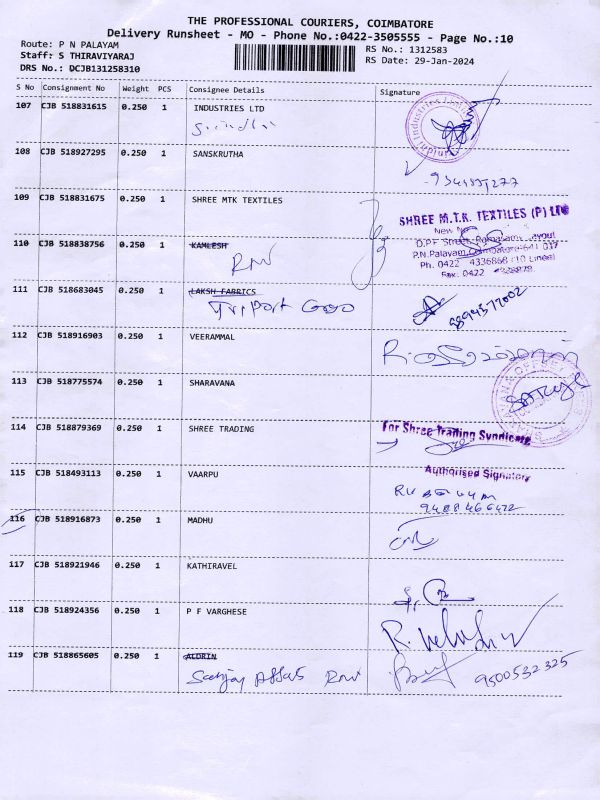 THE PROFESSIONAL COURIERS, COIMBATORE
Delivery Runsheet - MO - Phone No.:0422-3505555 - Page No.:10
Route: P N PALAYAM
Staff: S THIRAVIYARAJ
DRS No.: DCJB131258310
RS No.: 1312583
RS Date: 29-Jan-2024
S No Consignment No Weight PCS Consignee Details Signature
107 CJB 518831615 0.250 1 INDUSTRIES LTD
108 CJB 518927295 0.250 1 SANSKRUTHA
109 CJB 518831675 0.250 1 SHREE MTK TEXTILES
SHREE M.T.K. TEXTILES (P) LTD
New No
D.P.F Street, Ramasamy Layout
P.N.Palayam, Coimbatore-641 037
Ph: 0422 4336868 (10 Lines)
Fax: 0422
110 CJB 518838756 0.250 1 KAMLESH
111 CJB 518683045 0.250 1 LAKSH FABRICS
9894577002
112 CJB 518916903 0.250 1 VEERAMMAL
113 CJB 518775574 0.250 1 SHARAVANA
114 CJB 518879369 0.250 1 SHREE TRADING
For Shree Trading Syndicate
Authorised Signatory
115 CJB 518493113 0.250 1 VAARPU
116 CJB 518916873 0.250 1 MADHU
117 CJB 518921946 0.250 1 KATHIRAVEL
118 CJB 518924356 0.250 1 P F VARGHESE
119 CJB 518865605 0.250 1 ALDRIN
9500532325